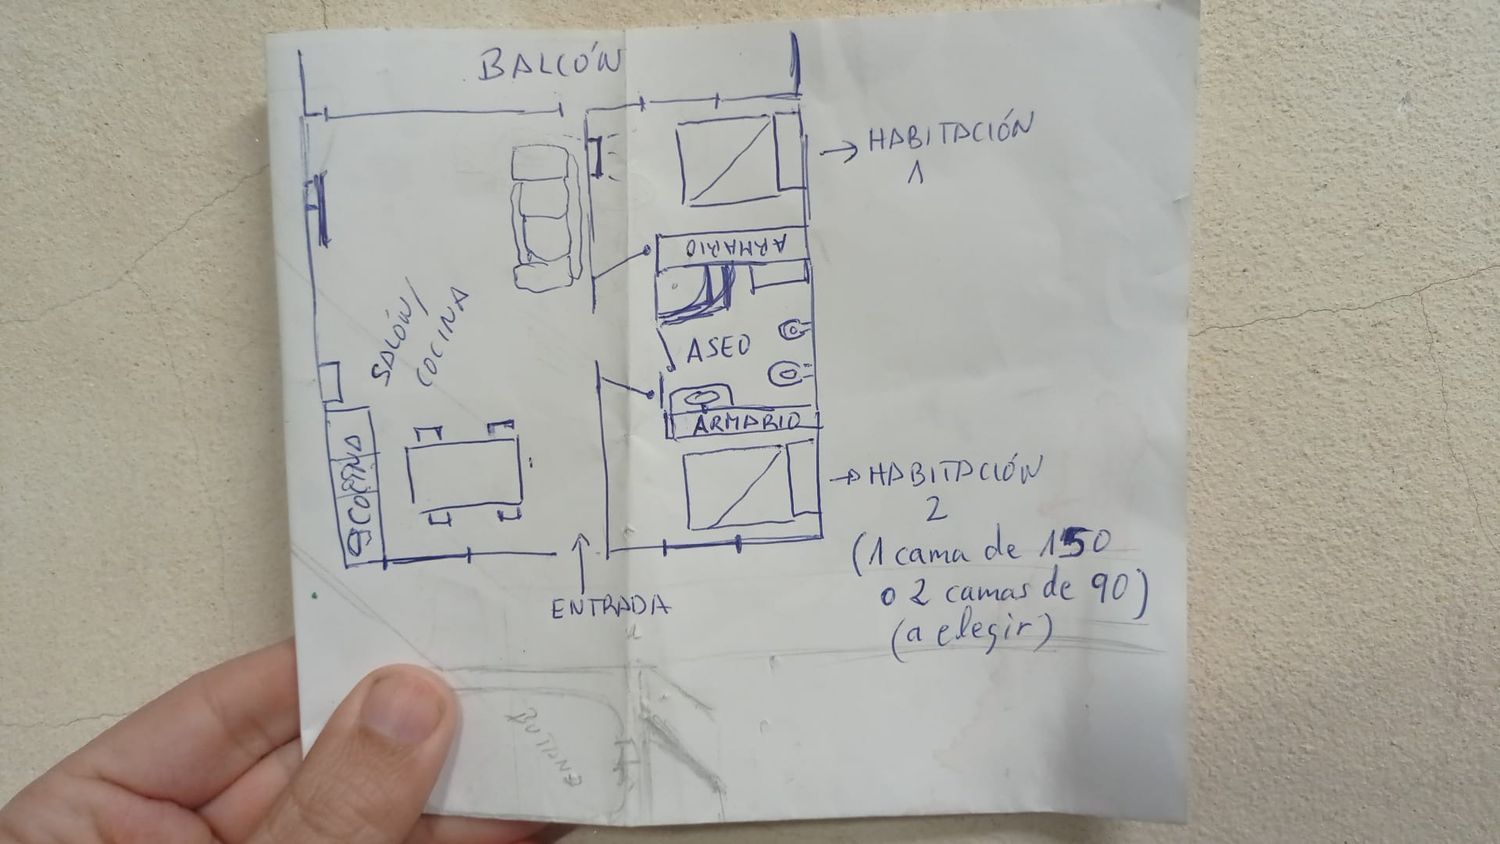 BALCÓN
HABITACIÓN
1
ARMARIO
SALÓN/
COCINA
ASEO
ARMARIO
COCINA
HABITACIÓN
2
(1 cama de 150
o 2 camas de 90)
(a elegir)
ENTRADA
BUTANE